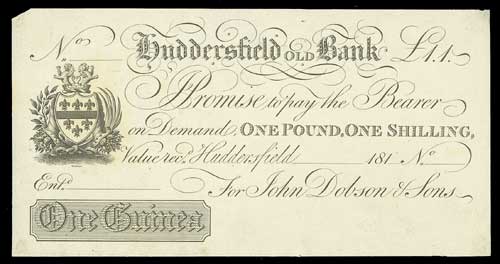 No. Huddersfield OLD Bank £1.1.
I Promise to pay the Bearer
on Demand, ONE POUND, ONE SHILLING,
Value recd. Huddersfield 181 No.
Entd. For John Dobson & Sons
One Guinea